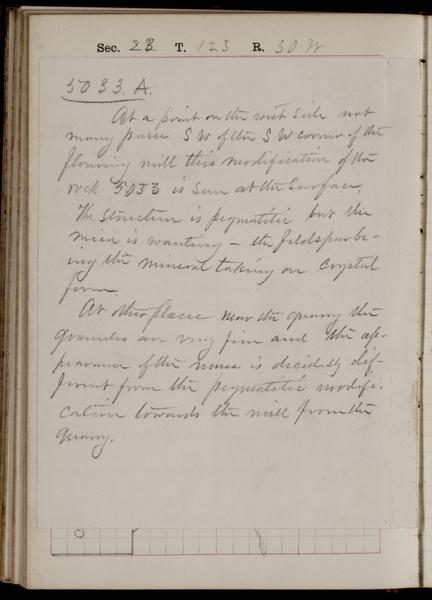 Sec. 23 T. 123 R. 30 W
5033.A.
At a point on the west side not
many paces S W of the S W corner of the
flouring mill this modification of the
rock 5033 is seen at the surface,
The structure is pegmatitic but the
mica is wanting – the feldspar be-
ing the mineral taking on crystal
form.
At other places near the quarry the
granules are very fine and the ap-
pearance of the mass is decidedly dif-
ferent from the pegmatitic modifi-
cation towards the mill from the
quarry.